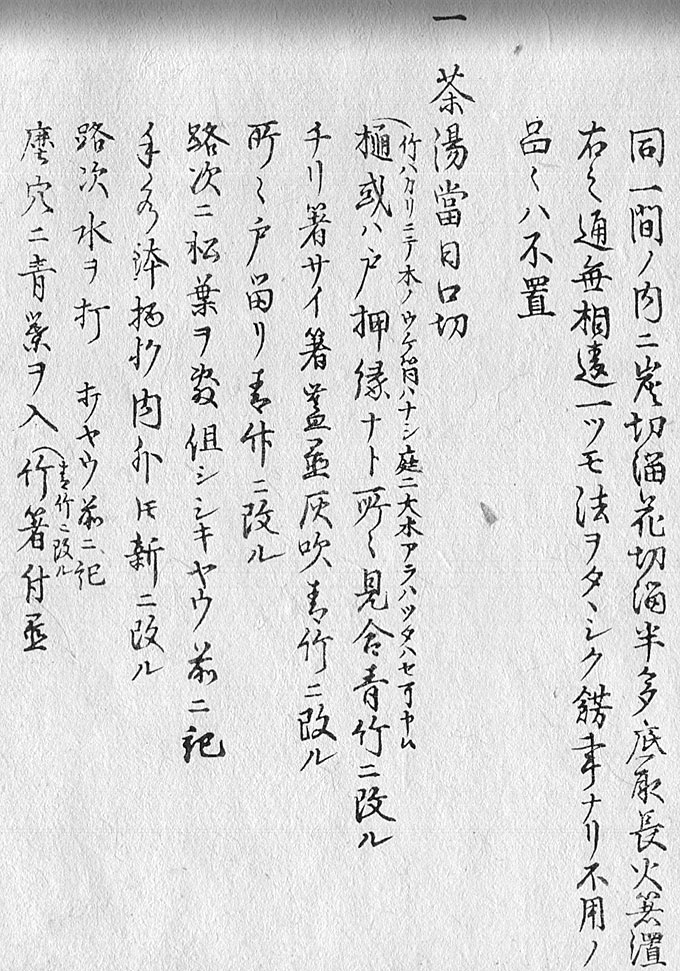 同一間ノ内ニ炭切溜花切溜半多底取長火箸置
右之通無相違一ツモ法ヲタヽシク餝事ナリ不用ノ
品々ハ不置
一 茶湯當日口切
竹ハカリニテ木ノウケ筒ハナシ庭ニ大木アラハツタハセ可申候
樋或ハ戸押縁ナト所々見合青竹ニ改ル
チリ箸サイ箸蓋置灰吹青竹ニ改ル
所々戸留リ青竹ニ改ル
路次ニ松葉ヲ敷但シシキヤウ前ニ記
手水鉢柄杓内外トモ新ニ改ル
路次水ヲ打 打ヤウ前ニ記
塵穴ニ青葉ヲ入 竹箸付置
青竹ニ改ル